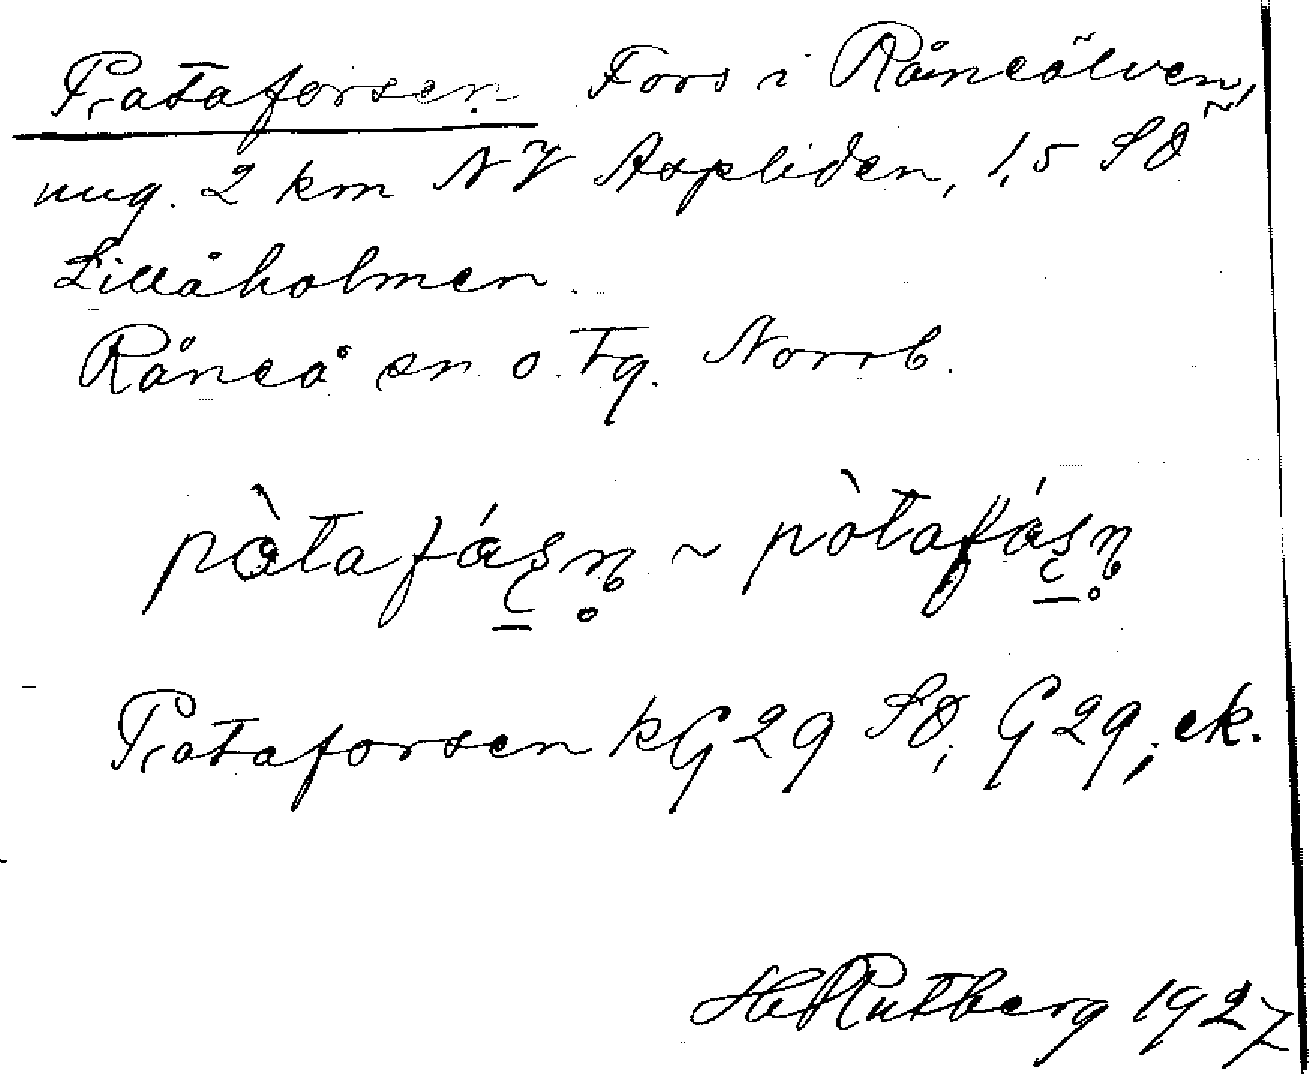 Pataforsen Fors i Råneälven,
ung. 2 km NV Aspliden, 1,5 SO
Lillåholmen.
Råneå sn o. tg. Norrb.
pàtafáʂṇ ~ pòtafáʂṇ
Pataforsen kG 29 SO, G 29; ek.
H Rutberg 1927